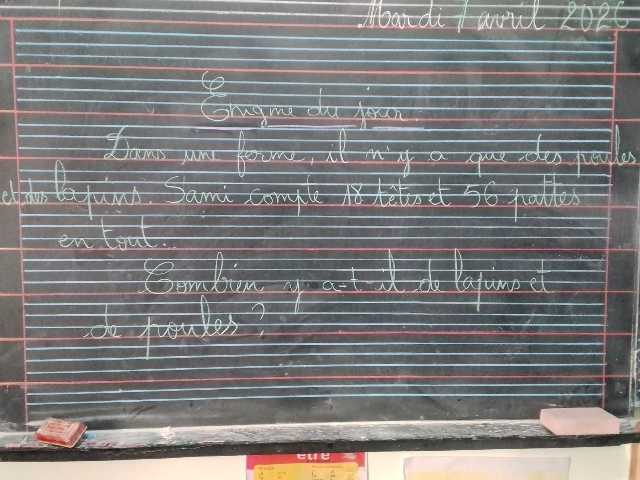 Mardi 7 avril 2026
Enigme du jour
Dans une ferme, il n'y a que des poules
et des lapins. Sami compte 18 têtes et 56 pattes
en tout.
Combien y a-t-il de lapins et
de poules ?
être